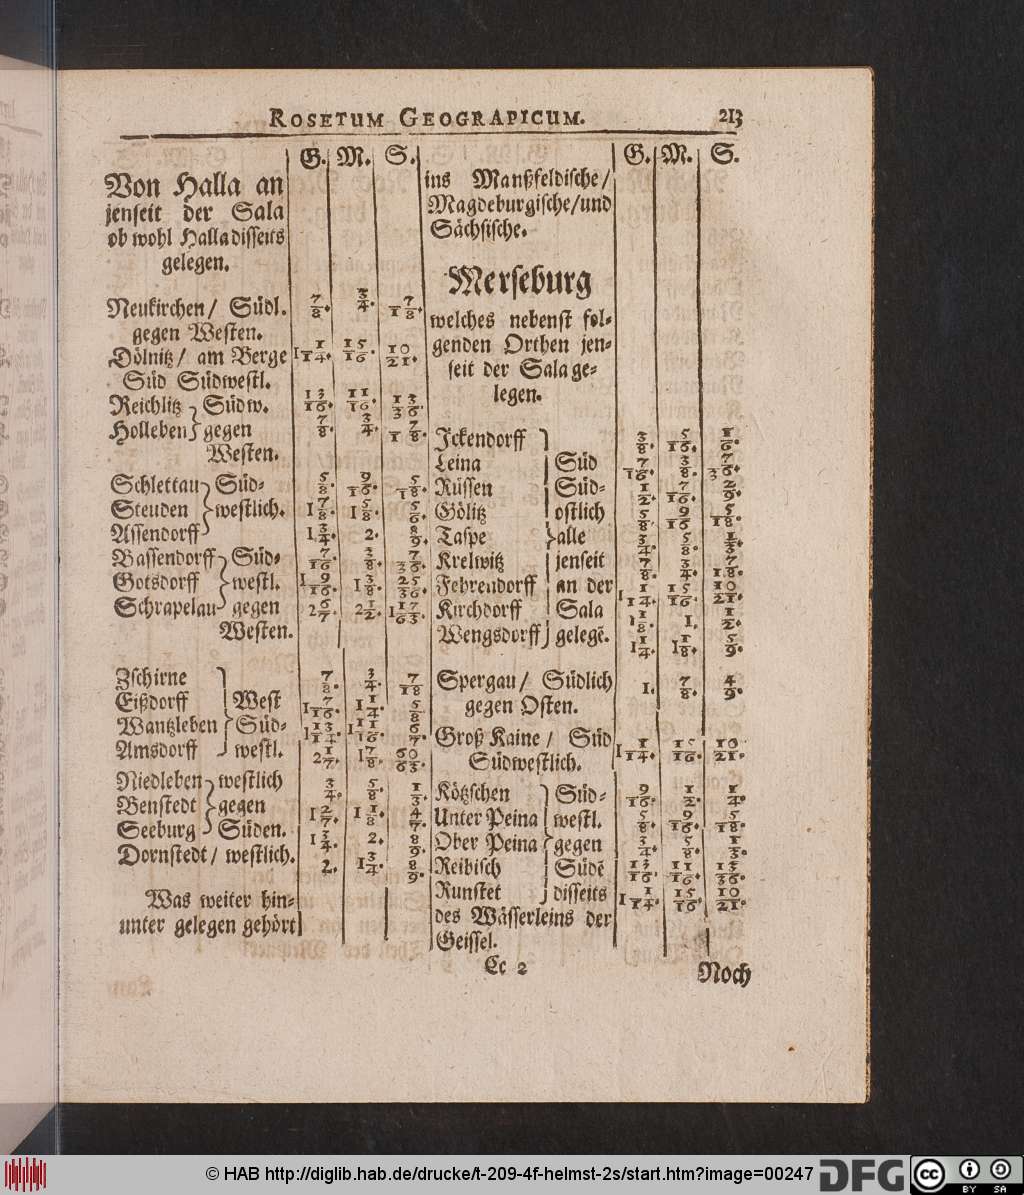 ROSETUM GEOGRAPICUM. 213
G. M. S.
Von Halla an
jenseit der Sala
ob wohl Halla disseits
gelegen.
Neukirchen / Südl. 7/8. 3/4. 1 7/8.
gegen Westen.
Dölnitz / am Berge
Süd Südwestl.
Reichlitz Südw. 13/16. 11/16. 13/36.
Holleben gegen 7/8. 3/4.
Westen.
Schlettau Süd- 5/8. 9/16. 5/18.
Steuden westlich. 1 7/8. 1 5/8. 5/6.
Assendorff 1 3/4. 2. 8/9.
Bassendorff Süd- 7/16. 3/8. 7/36.
Gotsdorff westl. 1 9/16. 1 3/8. 25/36.
Schrapelau gegen 2 6/7. 2 1/2. 1 17/63.
Westen.
Zschirne 7/8. 3/4. 7/18
Eißdorff West 1 7/16. 1 1/4. 5/8.
Wantzleben Süd- 1 13/14. 1 11/16. 6/7.
Amsdorff westl. 2 1/7. 1 7/8. 60/63.
Niedleben westlich 3/4. 5/8. 1/3.
Benstedt gegen 1 2/7. 1 1/8. 4/7.
Seeburg Süden. 1 3/4. 2. 8/9.
Dornstedt / westlich. 2. 1 3/4. 8/9.
Was weiter hin-
unter gelegen gehört
G. M. S.
ins Manßfeldische /
Magdeburgische / und
Sächsische.
Merseburg
welches nebenst fol-
genden Orthen jen-
seit der Sala ge-
legen.
Ickendorff 3/8. 5/16. 1/6.
Leina Süd 7/16. 3/8. 7/36.
Rüssen Süd- 1/2. 7/16. 2/9.
Gölitz ostlich 5/8. 9/16. 5/18.
Taspe alle 3/4. 5/8. 1/3.
Krelwitz jenseit 7/8. 3/4. 7/18.
Fehrendorff an der 1 1/14. 15/16. 10/21.
Kirchdorff Sala 1 1/8. 1. 1/2.
Wengsdorff gelegē. 1 1/4. 1 1/8. 5/9.
Spergau / Südlich 1. 7/8. 4/9.
gegen Osten.
Groß Kaine / Süd 1 1/14. 15/16. 10/21.
Südwestlich.
Kötzschen Süd- 9/16. 1/2. 1/4.
Unter Peina westl. 5/8. 9/16. 5/18.
Ober Peina gegen 3/4. 5/8. 1/3.
Reibisch Südē 13/16. 11/16. 13/36.
Runstet disseits 1 1/14. 15/16. 10/21.
des Wässerleins der
Geissel.
Cc 2
Noch
© HAB http://diglib.hab.de/drucke/t-209-4f-helmst-2s/start.htm?image=00247
DFG
cc BY SA